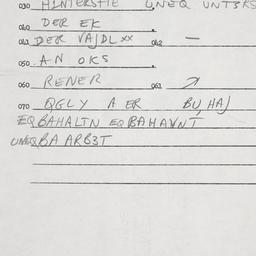 030 HINTERSTIE UNEQ UNT3RS
040 DER EK
041 DER VAJDL xx 042 —
050 AN OKS
060 RENER 061
070 QGLY A ER BU HAJ
EQBAHALTN EQBAHAVNT
UNEQBA ARB3T